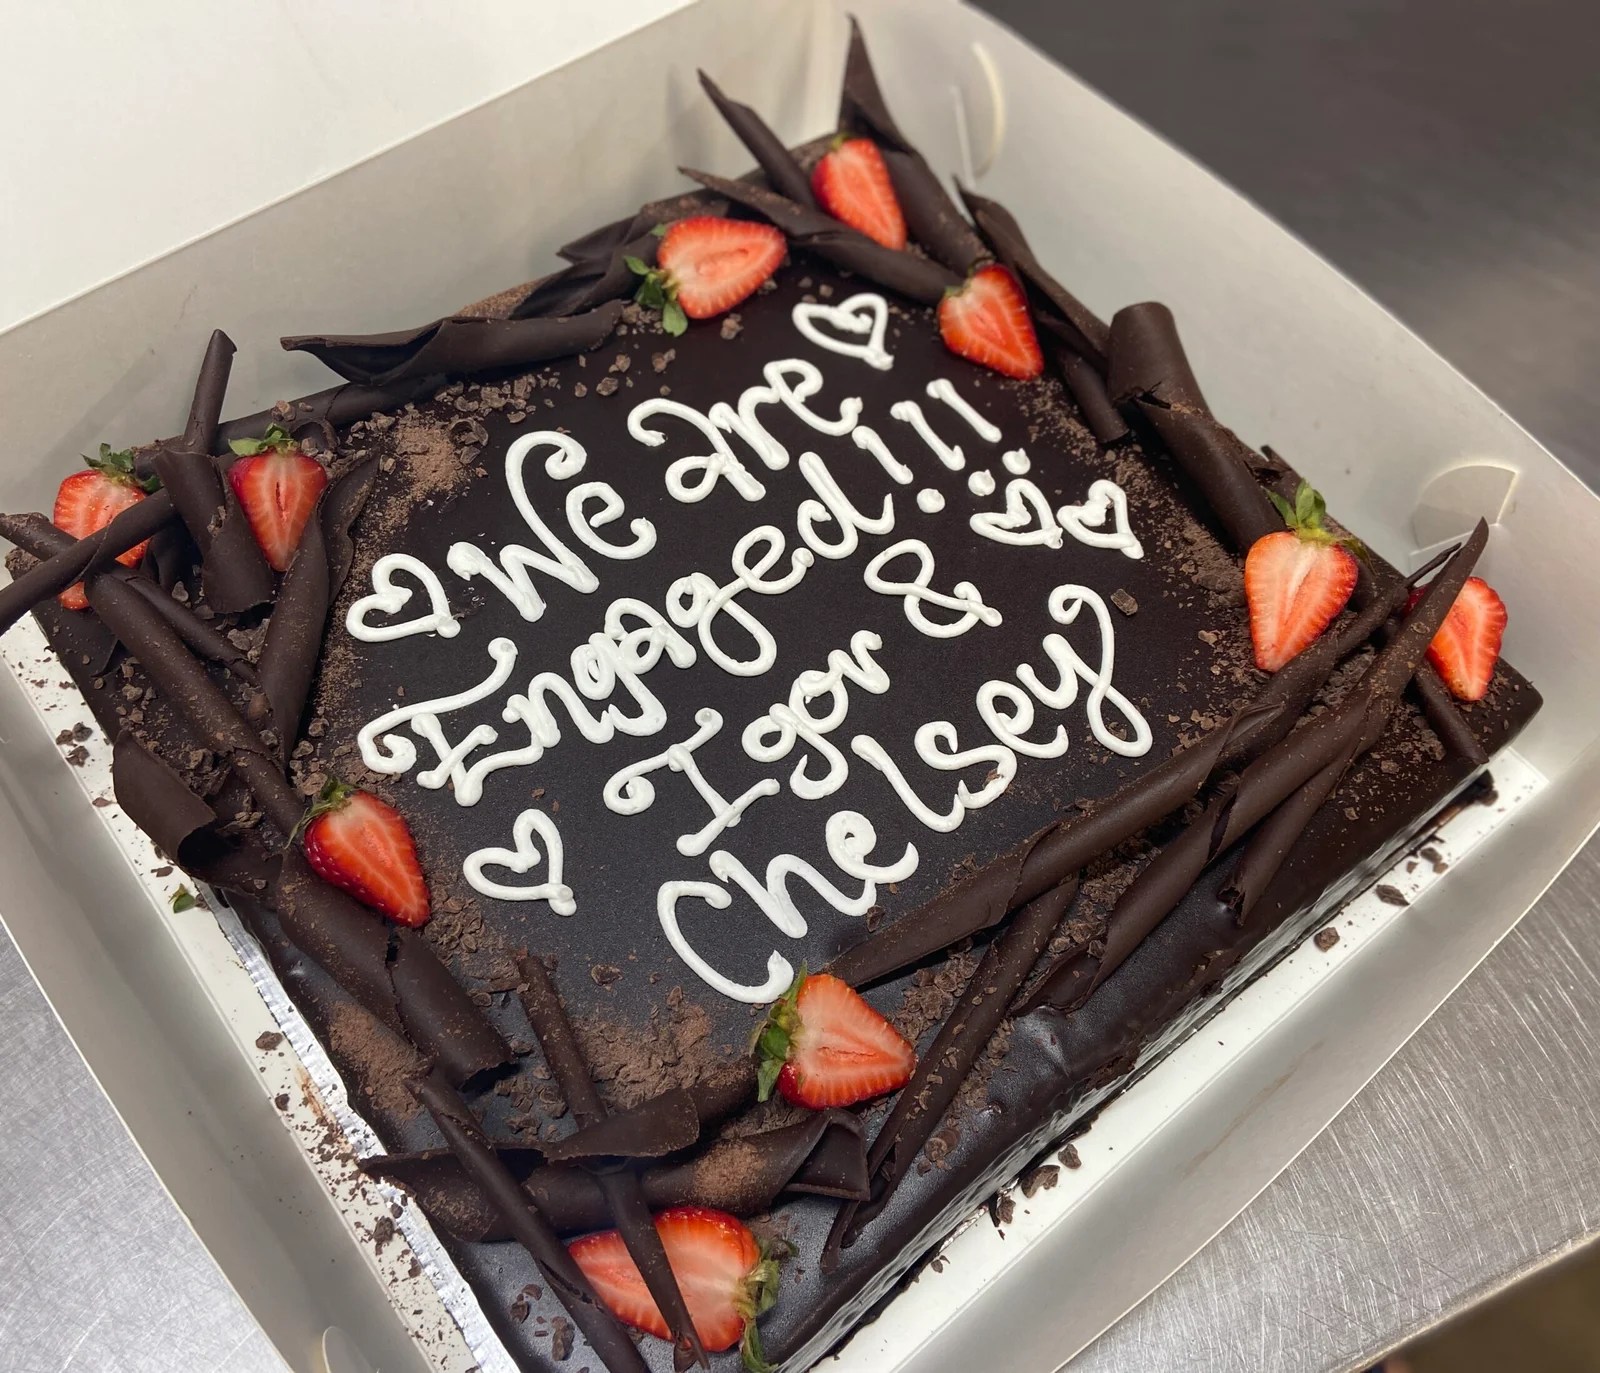 We are
Engaged!!!
Igor &
Chelsey